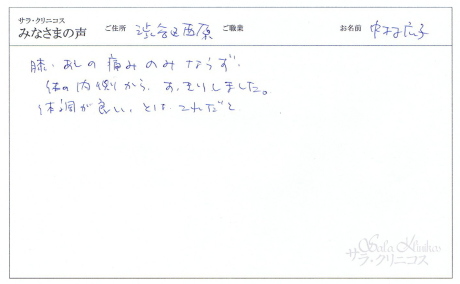 サラ・クリニコス
みなさまの声 ご住所 渋谷区西原 ご職業 お名前 中村広子
膝、あしの痛みのみならず、
体の内側から、すっきりしました。
体調が良い、とは、これだと
Sala Klinikos
サラ・クリニコス